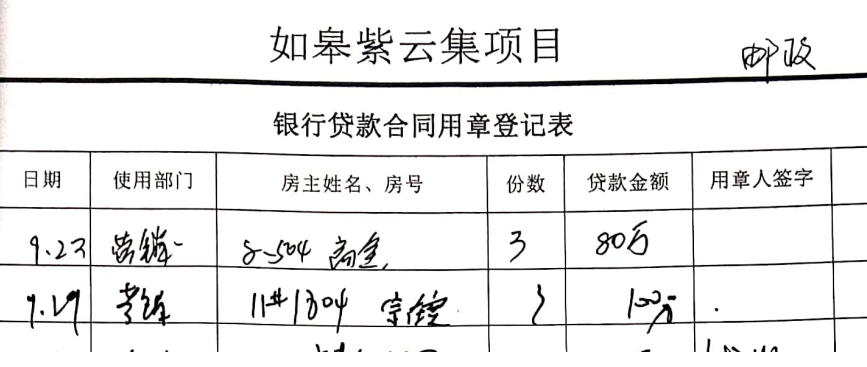 如皋紫云集项目
邮政
银行贷款合同用章登记表
日期 使用部门 房主姓名、房号 份数 贷款金额 用章人签字
9.23 营销 8-504 3 80万
9.29 营销 11#1304 3 100万